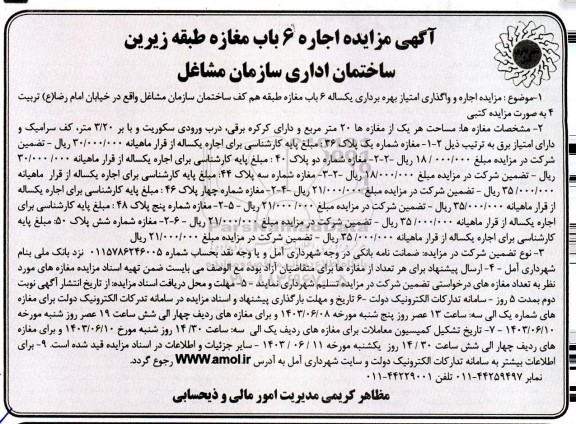 آگهی مزایده اجاره ۶ باب مغازه طبقه زیرین
ساختمان اداری سازمان مشاغل
۱-موضوع : مزایده اجاره و واگذاری امتیاز بهره برداری یکساله ۶ باب مغازه طبقه هم کف ساختمان سازمان مشاغل واقع در خیابان امام رضا(ع) تربیت
۴ به صورت مزایده کتبی
۲- مشخصات مغازه ها: مساحت هر یک از مغازه ها ۲۰ متر مربع و دارای کرکره برقی، درب ورودی سکوریت و با بر ۳/۲۰ متر، کف سرامیک و
دارای امتیاز برق به ترتیب ذیل ۲-۱- مغازه شماره یک پلاک ۳۶: مبلغ پایه کارشناسی برای اجاره یکساله از قرار ماهیانه ۳۰/۰۰۰/۰۰۰ ریال - تضمین
شرکت در مزایده مبلغ ۱۸/۰۰۰/۰۰۰ ریال -۲-۲- مغازه شماره دو پلاک ۴۰ : مبلغ پایه کارشناسی برای اجاره یکساله از قرار ماهیانه ۳۰/۰۰۰/۰۰۰
ریال - تضمین شرکت در مزایده مبلغ ۱۸/۰۰۰/۰۰۰ ریال -۲-۳- مغازه شماره سه پلاک ۴۴: مبلغ پایه کارشناسی برای اجاره یکساله از قرار ماهیانه
۳۵/۰۰۰/۰۰۰ ریال - تضمین شرکت در مزایده مبلغ ۲۱/۰۰۰/۰۰۰ ریال -۲-۴- مغازه شماره چهار پلاک ۴۶ : مبلغ پایه کارشناسی برای اجاره یکساله
از قرار ماهیانه ۳۵/۰۰۰/۰۰۰ ریال - تضمین شرکت در مزایده مبلغ ۲۱/۰۰۰/۰۰۰ ریال -۲-۵- مغازه شماره پنج پلاک ۴۸ : مبلغ پایه کارشناسی برای
اجاره یکساله از قرار ماهیانه ۳۵/۰۰۰/۰۰۰ ریال - تضمین شرکت در مزایده مبلغ ۲۱/۰۰۰/۰۰۰ ریال -۲-۶- مغازه شماره شش پلاک ۵۰: مبلغ پایه
کارشناسی برای اجاره یکساله از قرار ماهیانه ۳۵/۰۰۰/۰۰۰ ریال - تضمین شرکت در مزایده مبلغ ۲۱/۰۰۰/۰۰۰ ریال
۳- نوع تضمین شرکت در مزایده: ضمانت نامه بانکی در وجه شهرداری آمل و یا وجه نقد بحساب شماره ۰۱۱۵۷۸۶۲۴۶۰۰۵ نزد بانک ملی بنام
شهرداری آمل -۴- ارسال پیشنهاد برای هر تعداد از مغازه ها برای متقاضیان آزاد بوده مع الوصف می بایست ضمن تهیه اسناد مزایده مغازه های مورد
نظر به تعداد مغازه های درخواستی تضمین شرکت در مزایده تسلیم شهرداری نمایند -۵- مهلت و محل دریافت اسناد مزایده: از تاریخ انتشار آگهی نوبت
دوم بمدت ۵ روز - سامانه تدارکات الکترونیک دولت -۶ تاریخ و مهلت بارگذاری پیشنهاد و اسناد مزایده در سامانه تدرکات الکترونیک دولت برای مغازه
های شماره یک الی سه: ساعت ۱۳ عصر روز پنج شنبه مورخه ۱۴۰۳/۰۶/۰۸ و برای مغازه های ردیف چهار الی شش ساعت ۱۹ عصر روز شنبه مورخه
۱۴۰۳/۰۶/۱۰ -۷- تاریخ تشکیل کمیسیون معاملات برای مغازه های ردیف یک الی سه: ساعت ۱۴/۳۰ روز شنبه مورخ ۱۴۰۳/۰۶/۱۰ و برای مغازه
های ردیف چهار الی شش ساعت ۱۴/۳۰ روز یکشنبه مورخه ۱۴۰۳/۰۶/۱۱ - سایر جزئیات و اطلاعات در اسناد مزایده قید شده است. ۹- برای
اطلاعات بیشتر به سامانه تدارکات الکترونیک دولت و سایت شهرداری آمل به آدرس WWW.amol.ir رجوع گردد.
نمابر ۴۴۲۵۹۴۹۷-۰۱۱ تلفن ۴۴۲۲۹۰۰۱-۰۱۱
مظاهر کریمی مدیریت امور مالی و ذیحسابی